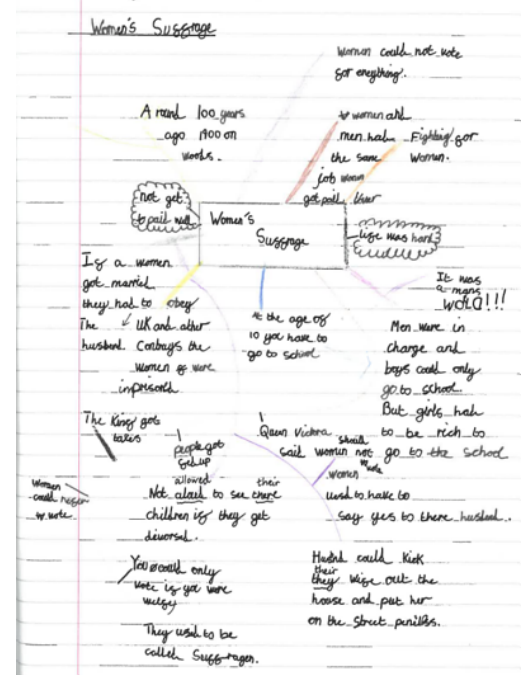 Women's Suffrage
Women could not vote
for enything.
Around 100 years
ago 1900 on
women and
men had
the same
job woman
got paid
Fighting for
Women.
not get
paid well
Women's
Suffrage
life was hard
It was
a mans
world!!!
If a women
got married
they had to obey
The
husband
UK and other
Conbays the
women
inprisond
At the age of
10 you have to
go to school
Men were in
charge and
boys could only
go to school.
But girls had
to be rich to
go to the school
The King got
taxes
people got
fed up
Queen Victora should
said women not
vote
women
used to have to
say yes to there husband.
Women
could never
vote.
allowed their
Not aloud to see there
children if they get
divorsed.
You could only
vote if you were
They used to be
called Suffragen.
Husbnd could Kick
their
they wife out the
house and put her
on the street peniless.